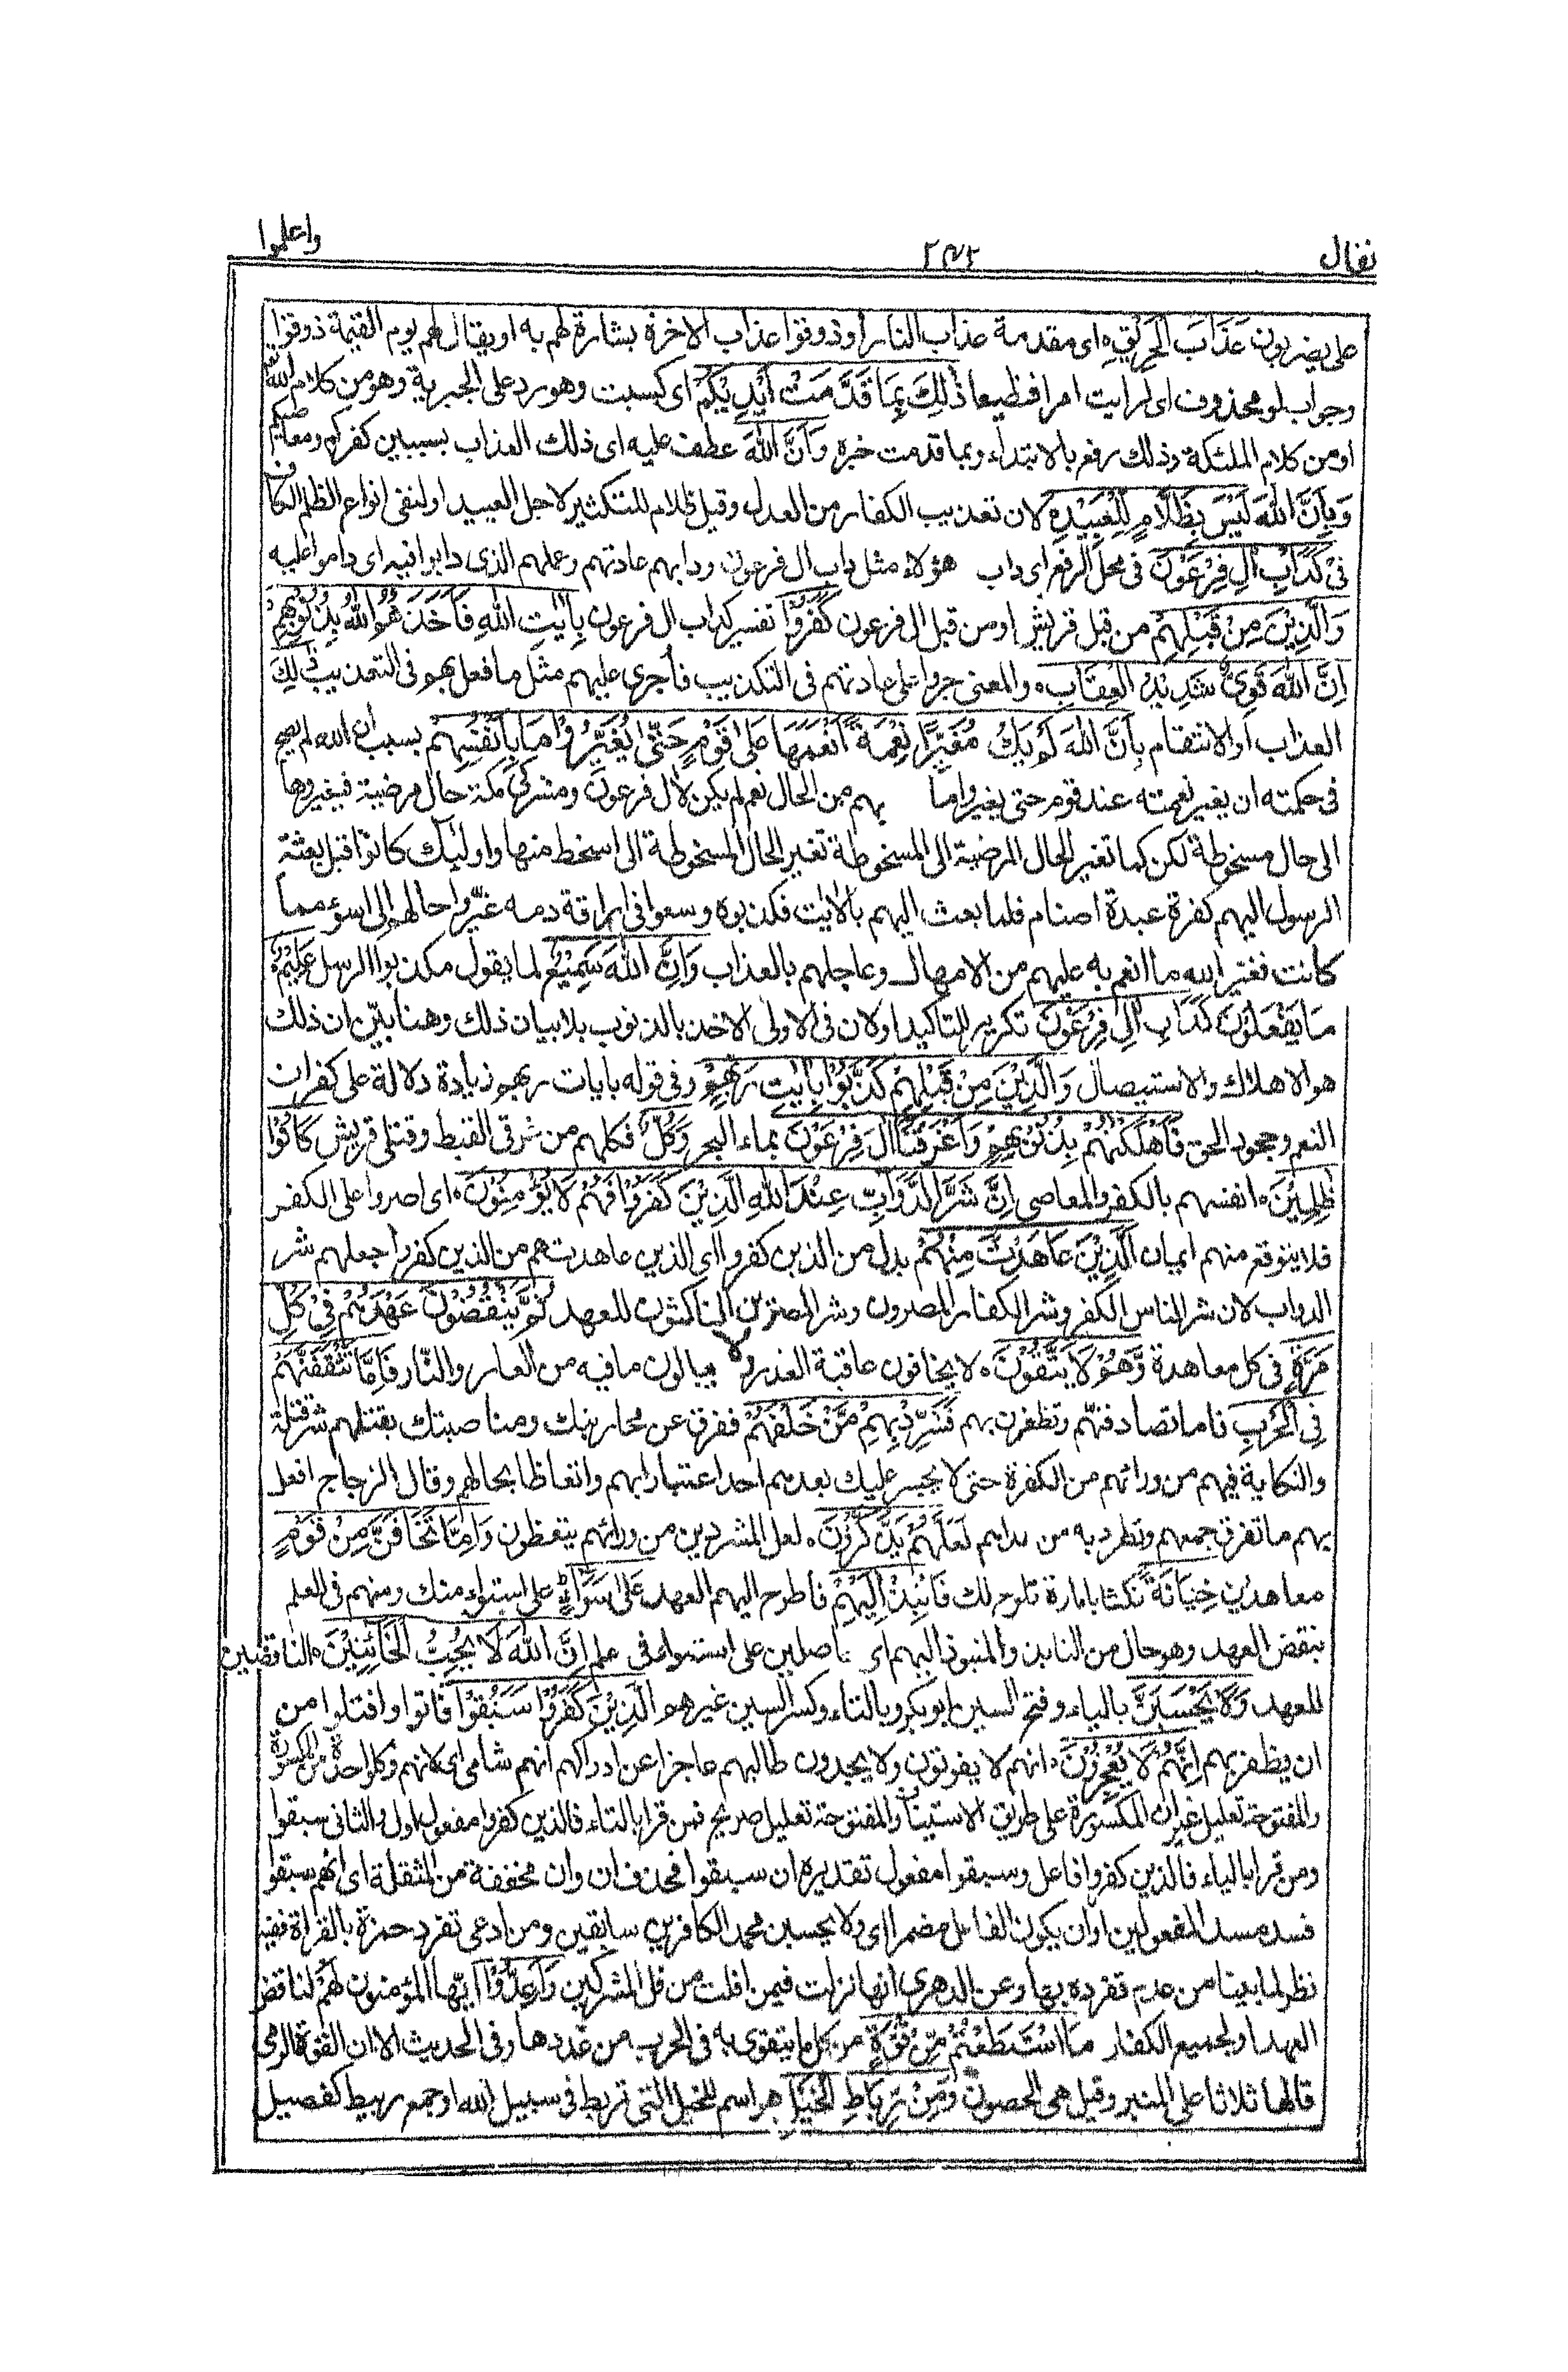 نفال ٣٧٢ واعلموا
على يضربون عَذَابَ الْحَرِيْقِ ای مقدمة عذاب النار او ذوقوا عذاب الاخرة بشارة لهم به او يقال لهم يوم القيمة ذوقوا
وجواب لو محذوف ای لرايت امرا فظيعا ذٰلِكَ بِمَا قَدَّمَتْ اَيْدِيْكُمْ ای كسبت وهو رد على الجبرية وهو من كلام الله
او من كلام الملئكة وذلك رفع بالابتداء وبما قدمت خبره وَاَنَّ اللّٰهَ عطف عليه ای ذلك العذاب بسببين كفركم ومعاصيكم
وَبِاَنَّ اللّٰهَ لَيْسَ بِظَلَّامٍ لِّلْعَبِيْدِ لان تعذيب الكفار من العدل وقيل ظلام للتكثير لاجل العبيد او لنفی انواع الظلم الكاف
فی كَدَاْبِ اٰلِ فِرْعَوْنَ فی محل الرفع ای داب هؤلاء مثل داب ال فرعون ودابهم عادتهم وعملهم الذی دابوا فيه ای داموا عليه
وَالَّذِيْنَ مِنْ قَبْلِهِمْ من قبل قريش او من قبل ال فرعون كَفَرُوْا تفسير كداب ال فرعون بِاٰيٰتِ اللّٰهِ فَاَخَذَهُمُ اللّٰهُ بِذُنُوْبِهِمْ
اِنَّ اللّٰهَ قَوِیٌّ شَدِيْدُ الْعِقَابِ والمعنی جروا على عادتهم فی التكذيب فأجری عليهم مثل ما فعل بهم فی التعذيب ذٰلِكَ
العذاب او الانتقام بِاَنَّ اللّٰهَ لَمْ يَكُ مُغَيِّرًا نِّعْمَةً اَنْعَمَهَا عَلٰى قَوْمٍ حَتّٰى يُغَيِّرُوْا مَا بِاَنْفُسِهِمْ بسبب ان الله لم يصح
فی حكمته ان يغير نعمته عند قوم حتی يغيروا ما بهم من الحال نعم لم يكن لأل فرعون ومشركی مكة حال مرضية فيغيروها
الى حال مسخوطة لكن كما تغير الحال المرضية الى المسخوطة تغير الحال المسخوطة الى اسخط منها واوليك كانوا قبل بعثة
الرسول اليهم كفرة عبدة اصنام فلما بعث اليهم بالايٰت فكذبوه وسعوا فی اراقة دمه غيّروا حالهم الى اسوء مما
كانت فغير الله ما انعم به عليهم من الامهال وعاجلهم بالعذاب وَاَنَّ اللّٰهَ سَمِيْعٌ لما يقول مكذبوا الرسل عَلِيْمٌ
ما يفعلون كَدَاْبِ اٰلِ فِرْعَوْنَ تكرير للتاكيد او لان فی الاولى الاخذ بالذنوب بلا بيان ذلك وهنا بيّن ان ذلك
هو الاهلاك والاستيصال وَالَّذِيْنَ مِنْ قَبْلِهِمْ كَذَّبُوْا بِاٰيٰتِ رَبِّهِمْ وفی قوله بايات ربهم زيادة دلالة على كفران
النعم وجحود الحق فَاَهْلَكْنٰهُمْ بِذُنُوْبِهِمْ وَاَغْرَقْنَا اٰلَ فِرْعَوْنَ بماء البحر وَكُلٌّ فكلهم من غرقی القبط وقتلی قريش كَانُوْا
ظٰلِمِيْنَ انفسهم بالكفر والمعاصی اِنَّ شَرَّ الدَّوَآبِّ عِنْدَ اللّٰهِ الَّذِيْنَ كَفَرُوْا فَهُمْ لَا يُؤْمِنُوْنَ ای اصروا على الكفر
فلا يتوقع منهم ايمان اَلَّذِيْنَ عَاهَدْتَّ مِنْهُمْ بدل من الذين كفروا ای الذين عاهدتهم من الذين كفروا جعلهم شر
الدواب لان شر الناس الكفر وشر الكفار المصرون وشر المصرين الناكثون للعهد ثُمَّ يَنْقُضُوْنَ عَهْدَهُمْ فِیْ كُلِّ
مَرَّةٍ فی كل معاهدة وَّهُمْ لَا يَتَّقُوْنَ لا يخافون عاقبة الغدر ولا يبالون ما فيه من العار والنّار فَاِمَّا تَثْقَفَنَّهُمْ
فِی الْحَرْبِ فاما تصادفنّهم وتظفرن بهم فَشَرِّدْ بِهِمْ مَّنْ خَلْفَهُمْ ففرق عن محاربتك ومناصبتك بقتلهم شر قتلة
والنكاية فيهم من ورائهم من الكفرة حتی لا يجسر عليك بعدهم احد اعتبارا بهم واتعاظا بحالهم وقال الزجاج افعل
بهم ما تفرق جمعهم وتطرد به من عداهم لَعَلَّهُمْ يَذَّكَّرُوْنَ لعل المشردين من ورائهم يتعظون وَاِمَّا تَخَافَنَّ مِنْ قَوْمٍ
معاهدين خِيَانَةً نكثا بامارة تلوح لك فَانْبِذْ اِلَيْهِمْ فاطرح اليهم العهد عَلٰى سَوَآءٍ على استواء منك ومنهم فی العلم
بنقض العهد وهو حال من النابذ والمنبوذ اليهم ای حاصلين على استواء فی علم اِنَّ اللّٰهَ لَا يُحِبُّ الْخَآئِنِيْنَ الناقضين
للعهد وَلَا يَحْسَبَنَّ بالياء وفتح السين ابو بكر وبالتاء وكسر السين غيرهم الَّذِيْنَ كَفَرُوْا سَبَقُوْا فاتوا وافتلتوا من
ان يظفر بهم اِنَّهُمْ لَا يُعْجِزُوْنَ انهم لا يفوتون ولا يجدون طالبهم عاجزا عن ادراكهم انهم شامی ای لانهم وكل واحدة من المكسورة
والمفتوحة تعليل غير ان المكسورة على طريق الاستيناف والمفتوحة تعليل صريح فمن قرا بالتاء فالذين كفروا مفعول اول والثانی سبقوا
ومن قرا بالياء فالذين كفروا فاعل وسبقوا مفعول تقديره ان سبقوا فحذف ان وان مخففة من المثقلة ای انهم سبقوا
فسد مسد المفعولين او ان يكون الفاعل مضمرا ای ولا يحسبن محمد الكافرين سابقين ومن ادعی تفرد حمزة بالقراة ففيه
نظر لما بينا من عدم تفرده بها وعن الزهری انها نزلت فيمن افلت من فل المشركين وَاَعِدُّوْا ايّها المؤمنون لَهُمْ لناقض
العهد او لجميع الكفار مَا اسْتَطَعْتُمْ مِّنْ قُوَّةٍ من كل ما يتقوی به فی الحرب من عددها وفی الحديث الا ان القوة الرمی
قالها ثلاثا على المنبر وقيل هی الحصون وَّمِنْ رِّبَاطِ الْخَيْلِ هو اسم للخيل التی تربط فی سبيل الله او جمع ربيط كفصيل